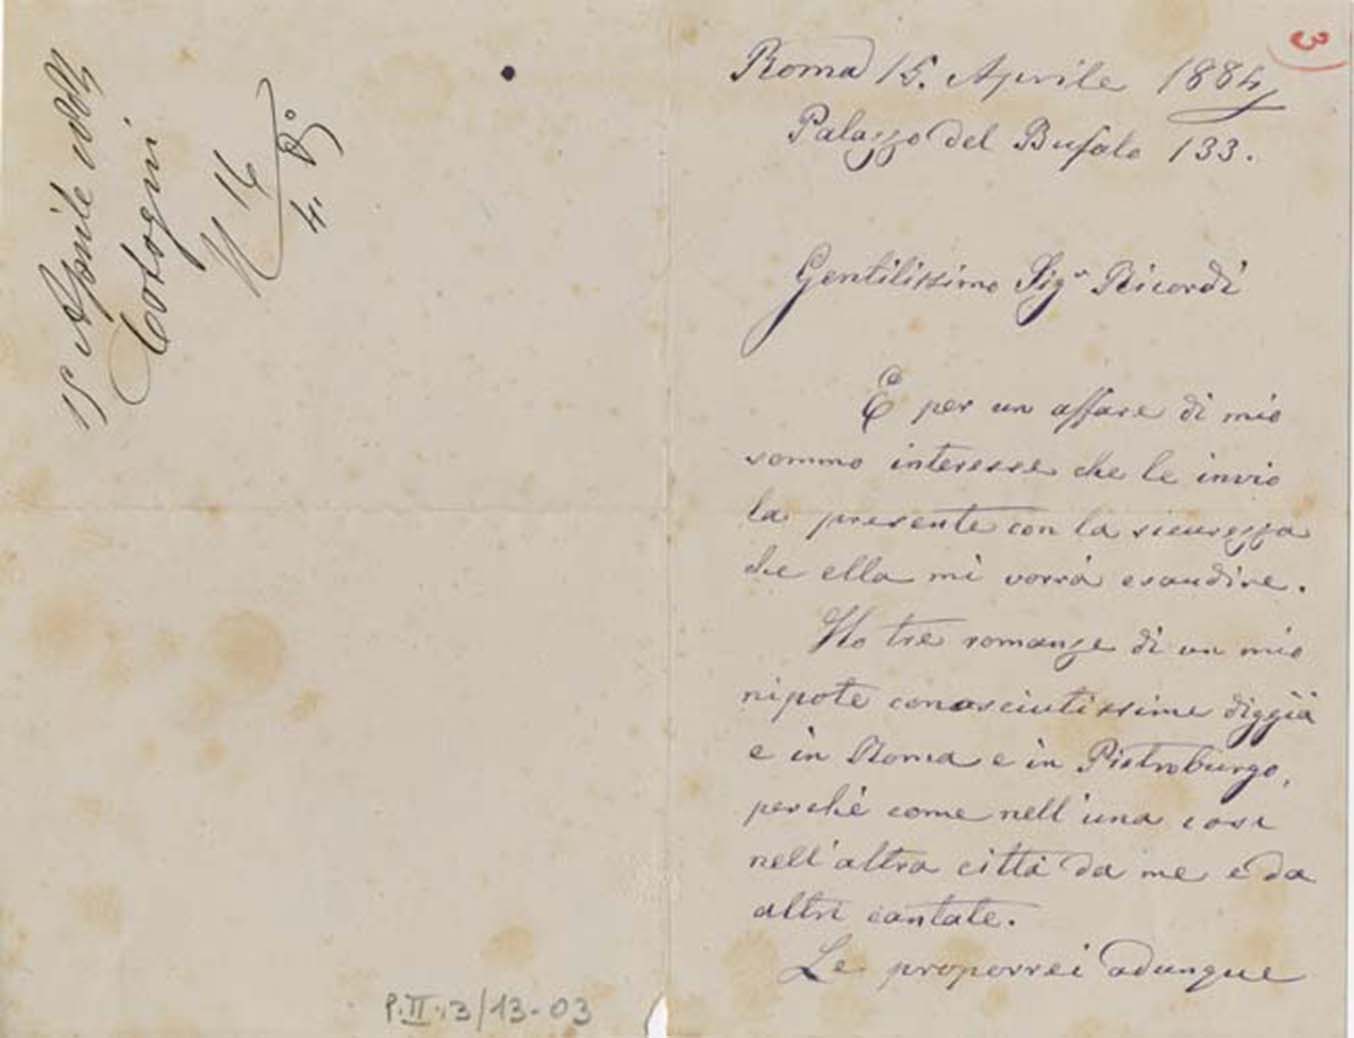 15 Aprile 1884
Cotogni
N 14
4. R.°
P.II.13/13-03
3
Roma 15. Aprile 1884
Palazzo del Bufalo 133.
Gentilissimo Sigr Ricordi
È per un affare di mio
sommo interesse che le invio
la presente con la sicurezza
che ella mi vorrà esaudire.
Ho tre romanze di un mio
nipote conosciutissime diggià
e in Roma e in Pietroburgo,
perchè come nell'una così
nell'altra città da me e da
altri cantate.
Le proporrei adunque